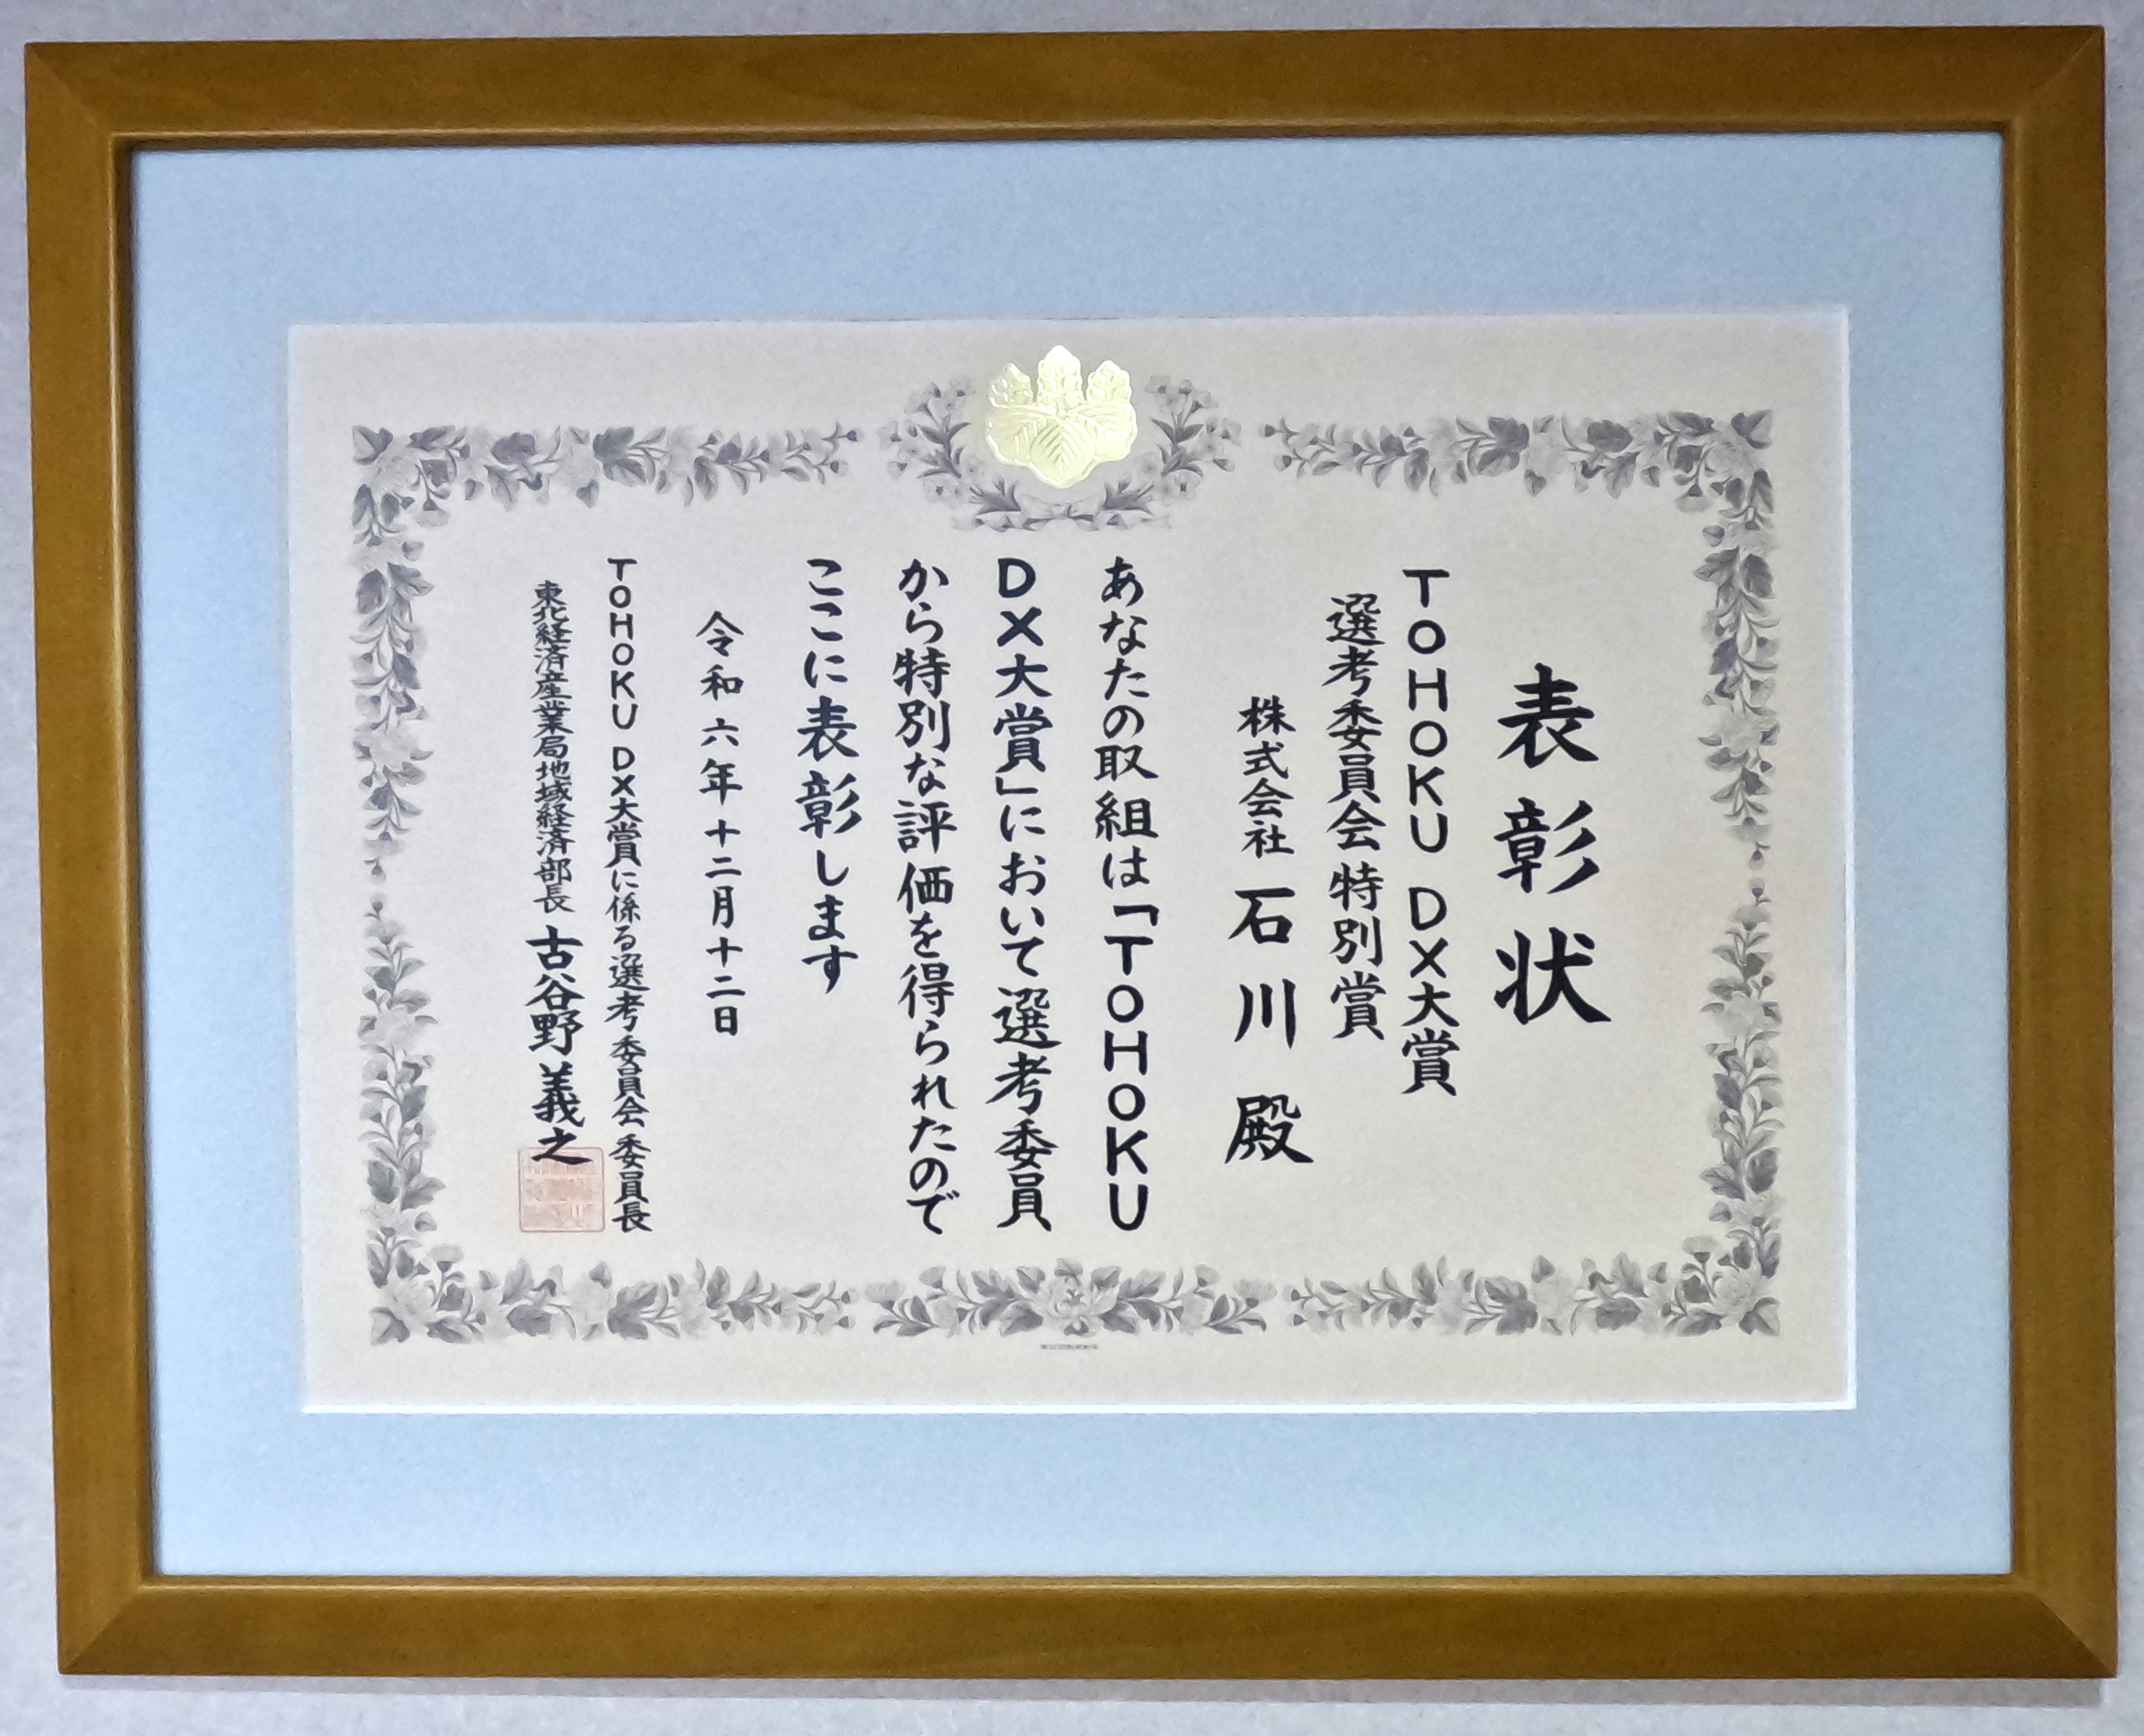 表彰状
TOHOKU DX大賞
選考委員会特別賞
株式会社石川殿
あなたの取組は「TOHOKU
DX大賞」において選考委員
から特別な評価を得られたので
ここに表彰します
令和六年十二月十二日
TOHOKU DX大賞に係る選考委員会委員長
東北経済産業局地域経済部長 古谷野義之